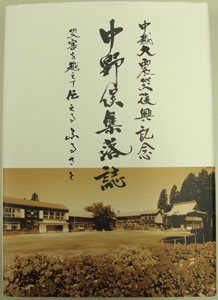 中越大震災復興記念
中野俣集落誌
災害を越えて伝えるふるさと